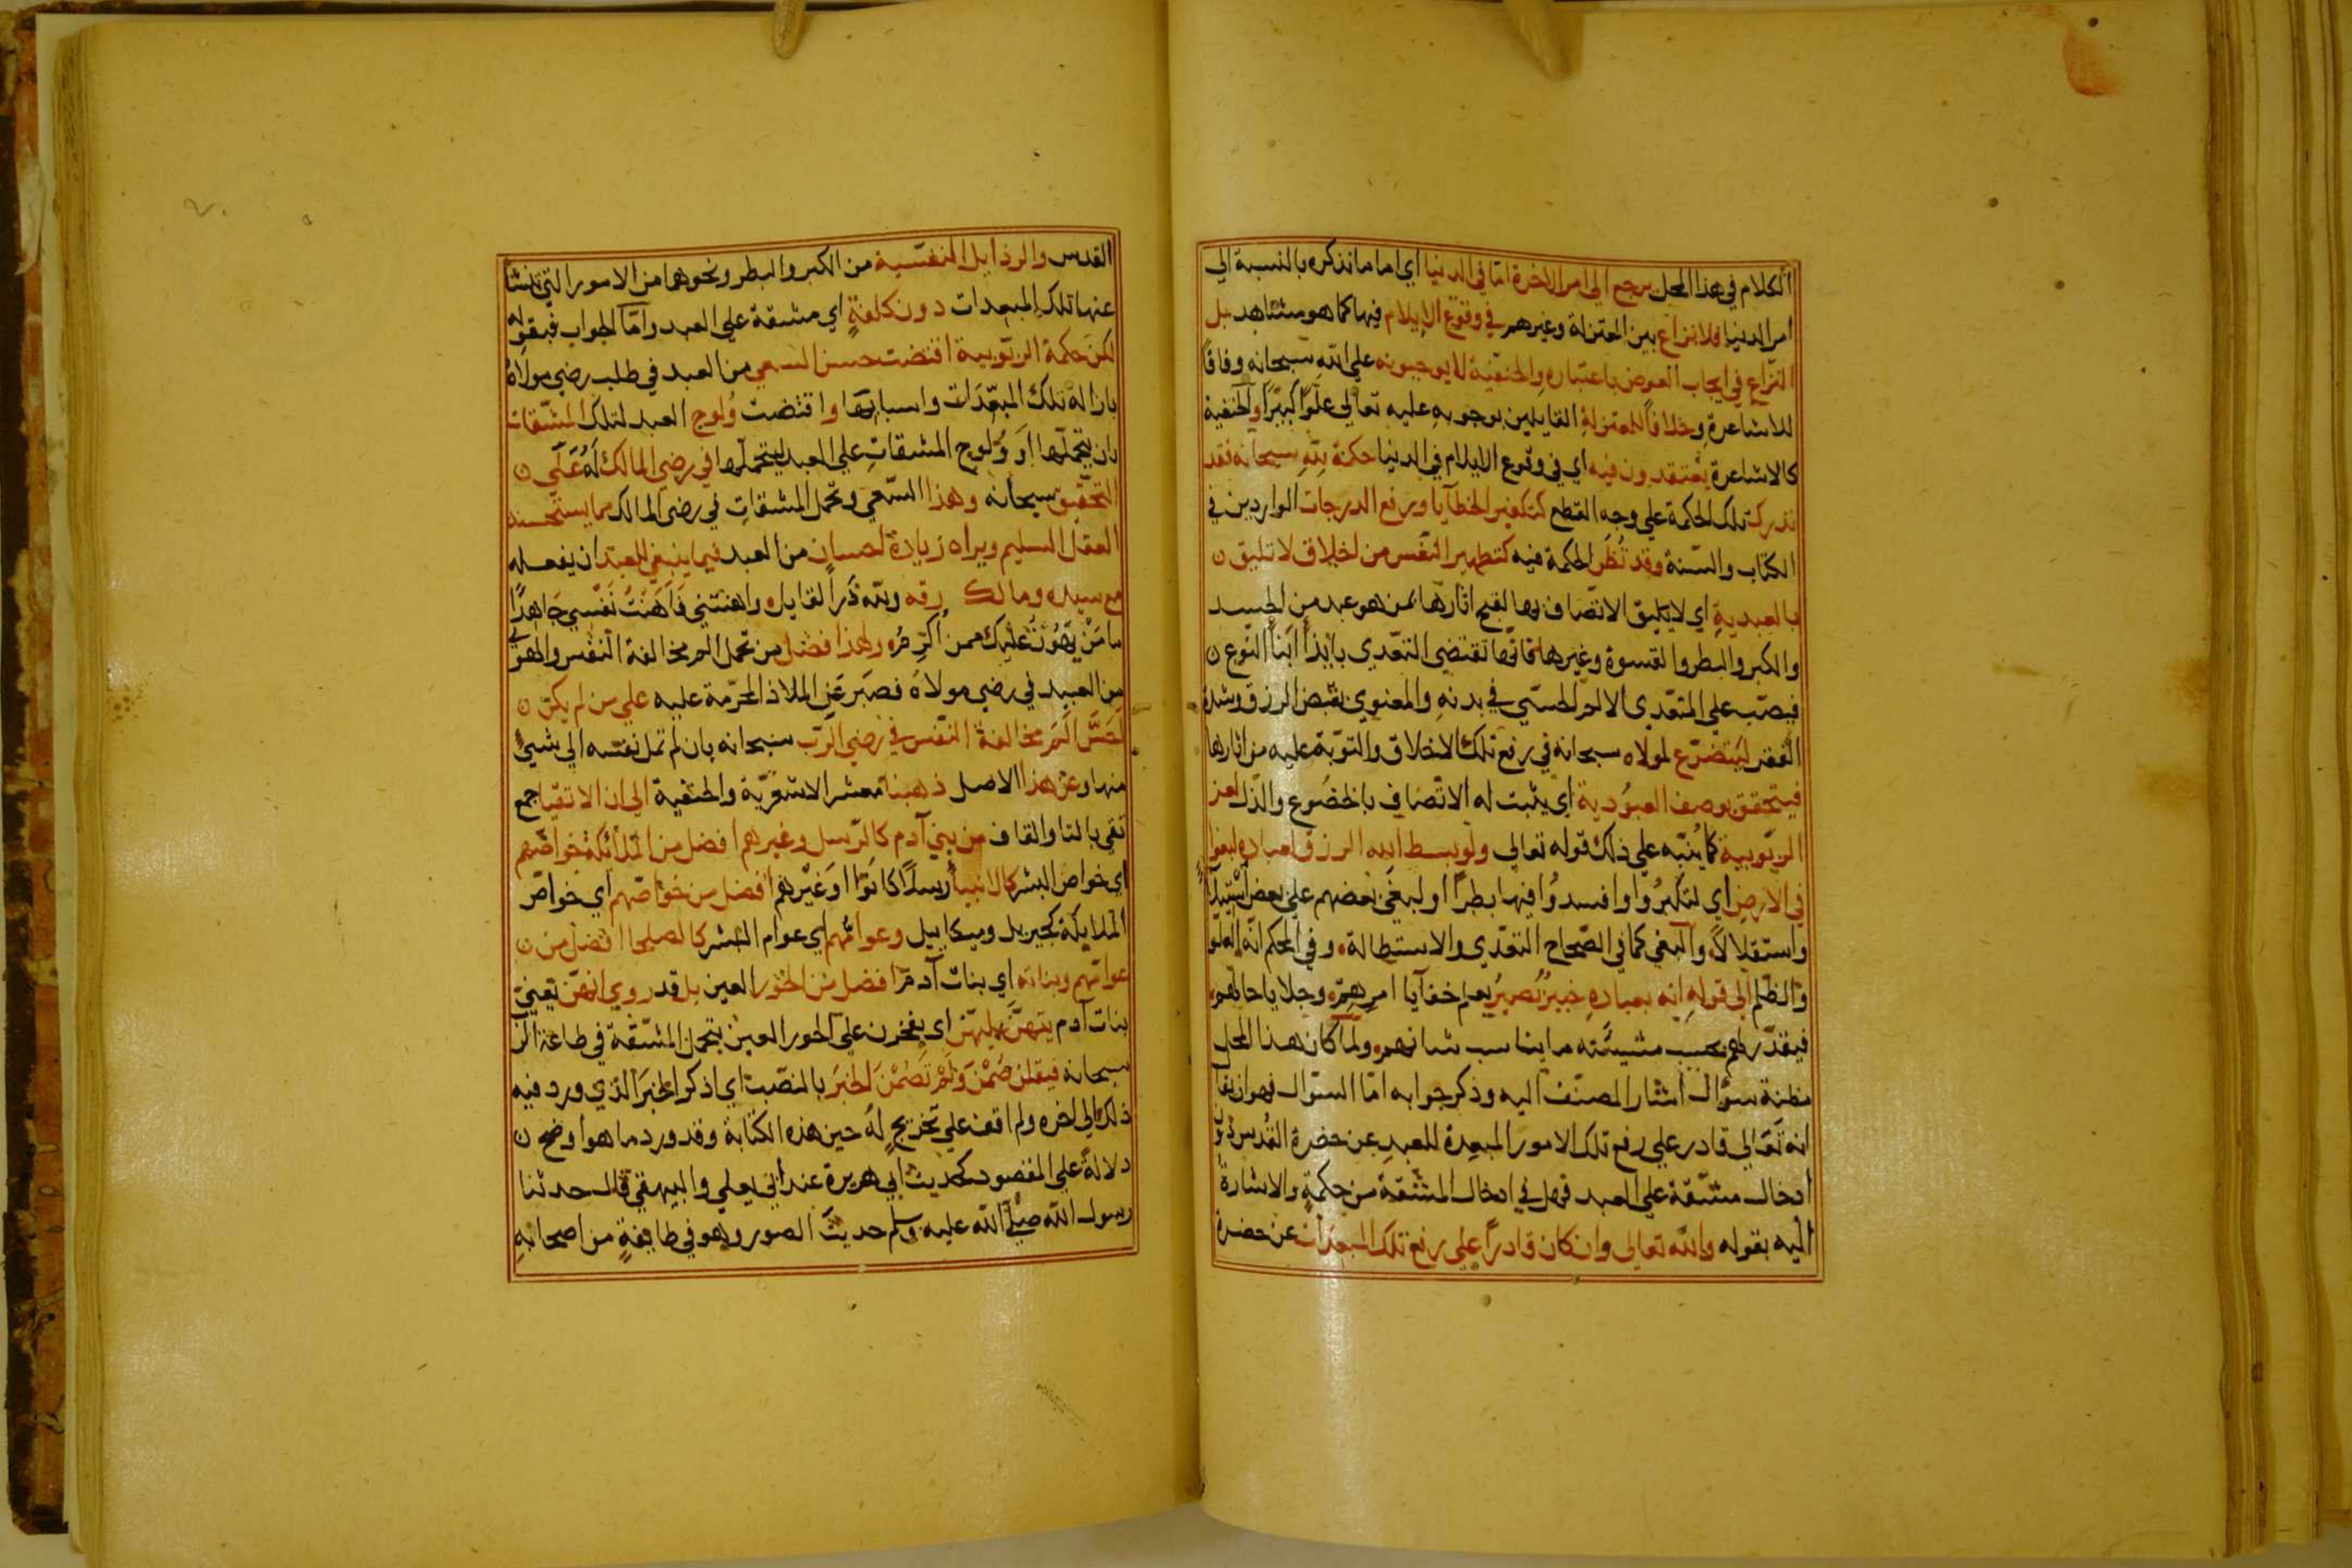 الكلام في هذا المحل يرجع الي امر الاخرة امّا في الدنيا اي اما ما نذكره بالنسبة الي
امر الدنيا فلا نزاع بين المعتزلة وغيرهم في وقوع الايلام فيها كما هو مشاهد بل
النّزاع في ايجاب العوض باعتباره والحنفيّة لا يوجبونه علي الله سبحانه وفاقاً
للاشاعرة وخلافاً للمعتزلة القايلين بوجوبه عليه تعالي علوّاً كبيرًا والحنفية
كالاشاعرة يعتقدون فيه اي في وقوع الايلام في الدنيا حكمة لله سبحانه فقد
ندرك تلك الحكمة علي وجه القطع كتكفير الخطآيا ورفع الدرجات الواردين في
الكتاب والسّنة وقد تُظَن الحكمة فيه كتطهير النّفس من اخلاق لا تليق ن
بالعبدية اي لا يليق الاتّصاف بها لقبح اثارها بمن هو عبد من الحسد
والكبر والبطر والقسوة وغيرها فانّها تقتضي التعّدي بايذاء ابناء النّوع ن
فيصّب علي المتعّدي الالم الحسّي في بدنه والمعنوي بقبض الرزق وشدة
الفقر ليتضرّع لمولاه سبحانه في رفع تلك الاخلاق والتوّبة عليه من اثارها
فيتحقق بوصف العبوُدية اي يثبت له الاتّصاف بالخضُوع والذّل لعز
الربّوبية كما يُنبّه علي ذلك قوله تعالي ولو بسط الله الرزق لعباده لبغوا
في الارض اي لتكبرُوا وافسدوُا فيها بطراً او لبغَي بعضهم علي بعض استيلآءً
واستقلالاً والبغي كما في الصّحاح التعّدي والاستطالة وفي المحكم انّه العلو
والظّلم الي قوله انه بعباده خبيرٌ بَصيرٌ يعلم خفآيا امرهم وجلايا حالهم
فيقدّر لهم بحسب مشيئته ما يناسب شانهم ولمّا كان هذا المحل
مظنة سؤال اشار المصنّف اليه وذكر جوابه امّا السؤال فهو ان يقال
انه تَعَالي قادر علي رفع تلك الامور المبعِدة للعبدِ عن حضرة القُدس دون
ادخال مشّقة علي العبد فهل في ادخال المشّقة من حكمةٍ والاشارة
اليه بقوله والله تعالي وان كان قادراً علي رفع تلك المبعدات عن حضرة
القدس والرذايل النفسّية من الكبر والبطر ونحوهما من الامور التي تنشأ
عنها تلك المبعدات دون كلفةٍ اي مشقة علي العبد وامّا الجواب فبقوله
لكن حكمة الربّوبية اقتضت حسن السعي من العبد في طلب رضي مولاه
بازالة تلك المبعّدات واسبابها واقتضت وُلوج العبد لتلك المشّقات
بان يتحملّها او وُلوج المشقات علي العبد ليتحملّها في رضي المالك لَهُ عَلَي ن
التحقيق سبحانه وهذا السّعي وتحمل المشقاتِ في رضي المالك مما يستحسنه
العقل السليم ويراه زيادة احسان من العبد فيما ينبغي للعبد ان يفعله
مع سيده ومالك رقه ولله دَر القايل واهنتني فَاَهَنْتُ نَفْسي جَاهِدًا
ما مَنْ يَهُونُ عَلَيْك ممن اُكرِمُه ولهذا فضل من تحمل الم مخالفة النّفس والهوي
من العبيد في رضي مولاه فصَبر عَن الملاذ المحرّمة عليه علي من لم يكن ن
يَحُسّ اَلَم مخالفة النّفس في رضي الرّب سبحانه بان لم تمل نفسه الي شيئ
منها وعن هذا الاصل ذهبنا معشر الاشعريّة والحنفية الي ان الاتقيا جمع
تقي بالتا والقاف من بني آدم كالرّسل وغيرهم افضل من الملائكة خواصّهم
اي خواص البشر كالانبيا رسلاً كانَوا او غَيْرهم افضل من خواصّهم اي خواصّ
الملايكة كجبريل وميكاييل وعوامُّهم اي عوام البشر كالصلحا افضل من ن
عوامّهم وبناته اي بنات آدم افضل من الحُور العين بل قد روي انهنّ يعني
بنات آدم يتهنّ عليهنّ اي يفخرن علي الحور العين بتحمل المشّقة في طاعة الله
سبحانه فيقلن صُمْنَ وَلَمْ تَصُمْنَ الخبرَ بالنصّب اي اذكر الخبرَ الذي ورد فيه
ذلك الي اخره ولم اقف علي تخريجٍ لَهُ حين هذه الكتابة وقد ورد ما هو اوضح ن
دلالةً علي المقصود كحديث ابي هريرة عند ابي يعلي والبيهقي قال حدثنا
رسول الله صلي الله عليه وسلم حديثَ الصور وهو في طايفةٍ من اصحابهِ